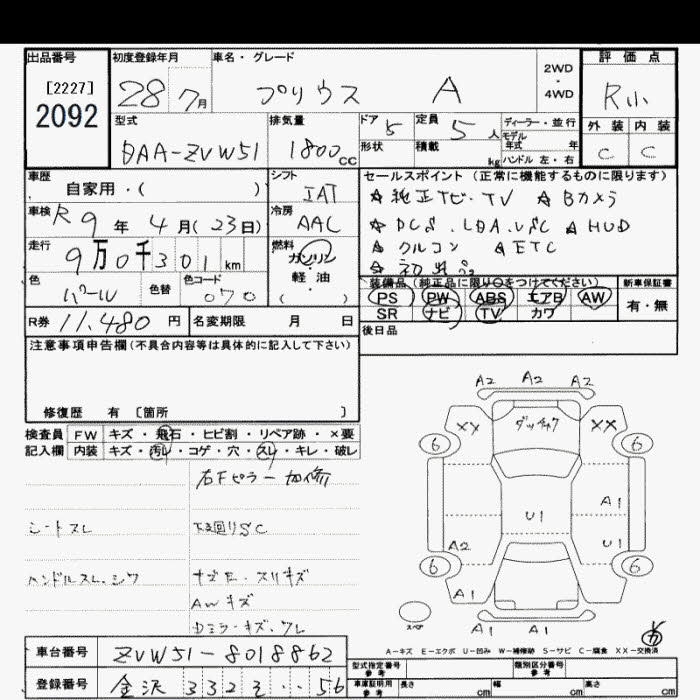 出品番号 初度登録年月 車名・グレード 評価点
[2227]
2092
28 7月 プリウス A 2WD ・ 4WD R小
型式 排気量 ドア 定員 ディーラー・並行 外装 内装
DAA-ZVW51 1800cc 5 5人 モデル年式 年 C C
形状 積載 kg ハンドル 左・右
車歴 シフト セールスポイント（正常に機能するものに限ります）
自家用・( ) IAT ☆純正ナビ・TV ☆Bカメラ
車検 R9年4月(23日) 冷房 AAC ☆DCS.LDA.VSC ☆HUD
走行 9万0千301km 燃料 ガソリン・軽油 ( ) ☆クルコン ☆ETC
色 パール 色替 色コード 070
装備品（純正品に限り○をつけてください） 新車保証書
PS PW ABS エアB AW 有・無
SR ナビ TV カワ
R券 11,480円 名変期限 月 日 後日品
注意事項申告欄(不具合内容等は具体的に記入して下さい)
修復歴 有 [箇所 ]
検査員 FW キズ・飛石・ヒビ割・リペア跡・×要
記入欄 内装 キズ・汚レ・コゲ・穴・スレ・キレ・破レ
右Fピラー 加修
シートスレ 下廻りSC
ハンドルスレ、シワ
AWキズ
A2 A2 A2
XX XX
6 6
U1
A1
A2 U1
6 6
A1 A1
A1 A1
スペア
A-キズ E-エクボ U-凹み W-補修跡 S-サビ C-腐食 XX-交換済
車台番号 ZVW51-8018862
登録番号 金沢 332 ・・56
型式指定番号 参考 類別区分番号 参考
車庫証明用 参考 長さ cm 幅 cm 高さ cm